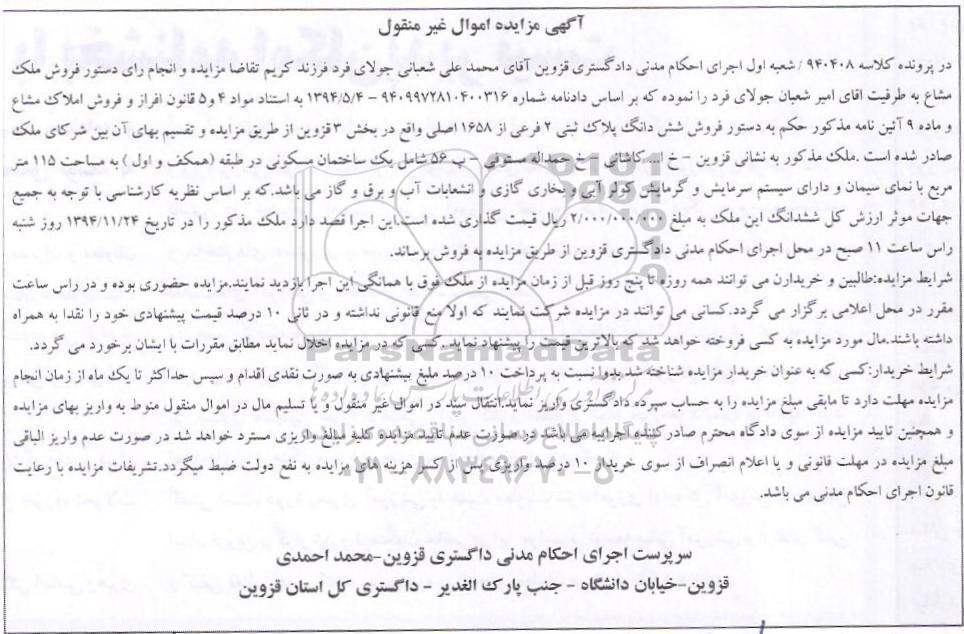 آگهی مزایده اموال غیر منقول
در پرونده کلاسه ۹۴۰۴۰۸ / شعبه اول اجرای احکام مدنی دادگستری قزوین آقای محمد علی شعبانی جولای فرد فرزند کریم تقاضا مزایده و انجام رای دستور فروش ملک
مشاع به طرفیت اقای امیر شعبان جولای فرد را نموده که بر اساس دادنامه شماره ۹۴۰۹۹۷۲۸۱۰۴۰۰۳۱۶ – ۱۳۹۴/۵/۴ به استناد مواد ۴ و۵ قانون افراز و فروش املاک مشاع
و ماده ۹ آئین نامه مذکور حکم به دستور فروش شش دانگ پلاک ثبتی ۲ فرعی از ۱۶۵۸ اصلی واقع در بخش ۳ قزوین از طریق مزایده و تقسیم بهای آن بین شرکای ملک
صادر شده است .ملک مذکور به نشانی قزوین – خ ا... کاشانی – خ حمداله مستوفی – پ ۵۶ شامل یک ساختمان مسکونی در طبقه (همکف و اول ) به مساحت ۱۱۵ متر
مربع با نمای سیمان و دارای سیستم سرمایش و گرمایش کولر آبی و بخاری گازی و انشعابات آب و برق و گاز می باشد.که بر اساس نظریه کارشناسی با توجه به جمیع
جهات موثر ارزش کل ششدانگ این ملک به مبلغ ۲/۰۰۰/۰۰۰/۰۰۰ ریال قیمت گذاری شده است.این اجرا قصد دارد ملک مذکور را در تاریخ ۱۳۹۴/۱۱/۲۴ روز شنبه
راس ساعت ۱۱ صبح در محل اجرای احکام مدنی دادگستری قزوین از طریق مزایده به فروش برساند.
شرایط مزایده:طالبین و خریدارن می توانند همه روزه تا پنج روز قبل از زمان مزایده از ملک فوق با همانگی این اجرا بازدید نمایند.مزایده حضوری بوده و در راس ساعت
مقرر در محل اعلامی برگزار می گردد.کسانی می توانند در مزایده شرکت نمایند که اولا منع قانونی نداشته و در ثانی ۱۰ درصد قیمت پیشنهادی خود را نقدا به همراه
داشته باشند.مال مورد مزایده به کسی فروخته خواهد شد که بالاترین قیمت را پیشنهاد نماید .کسی که در مزایده اخلال نماید مطابق مقررات با ایشان برخورد می گردد.
شرایط خریدار:کسی که به عنوان خریدار مزایده شناخته شد بدوا نسبت به پرداخت ۱۰ درصد مبلغ پیشنهادی به صورت نقدی اقدام و سپس حداکثر تا یک ماه از زمان انجام
مزایده مهلت دارد تا مابقی مبلغ مزایده را به حساب سپرده دادگستری واریز نماید.انتقال سند در اموال غیر منقول و یا تسلیم مال در اموال منقول منوط به واریز بهای مزایده
و همچنین تایید مزایده از سوی دادگاه محترم صادر کننده اجرائیه می باشد در صورت عدم تایید مزایده کلیه مبالغ واریزی مسترد خواهد شد در صورت عدم واریز الباقی
مبلغ مزایده در مهلت قانونی و یا اعلام انصراف از سوی خریدار ۱۰ درصد واریزی پس از کسر هزینه های مزایده به نفع دولت ضبط میگردد.تشریفات مزایده با رعایت
قانون اجرای احکام مدنی می باشد.
سرپرست اجرای احکام مدنی داگستری قزوین-محمد احمدی
قزوین-خیابان دانشگاه - جنب پارک الغدیر - داگستری کل استان قزوین
ParsNamadData
پایگاه اطلاع رسانی مناقصه و مزایده
۰۲۱-۸۸۳۴۹۶۷۰-۵